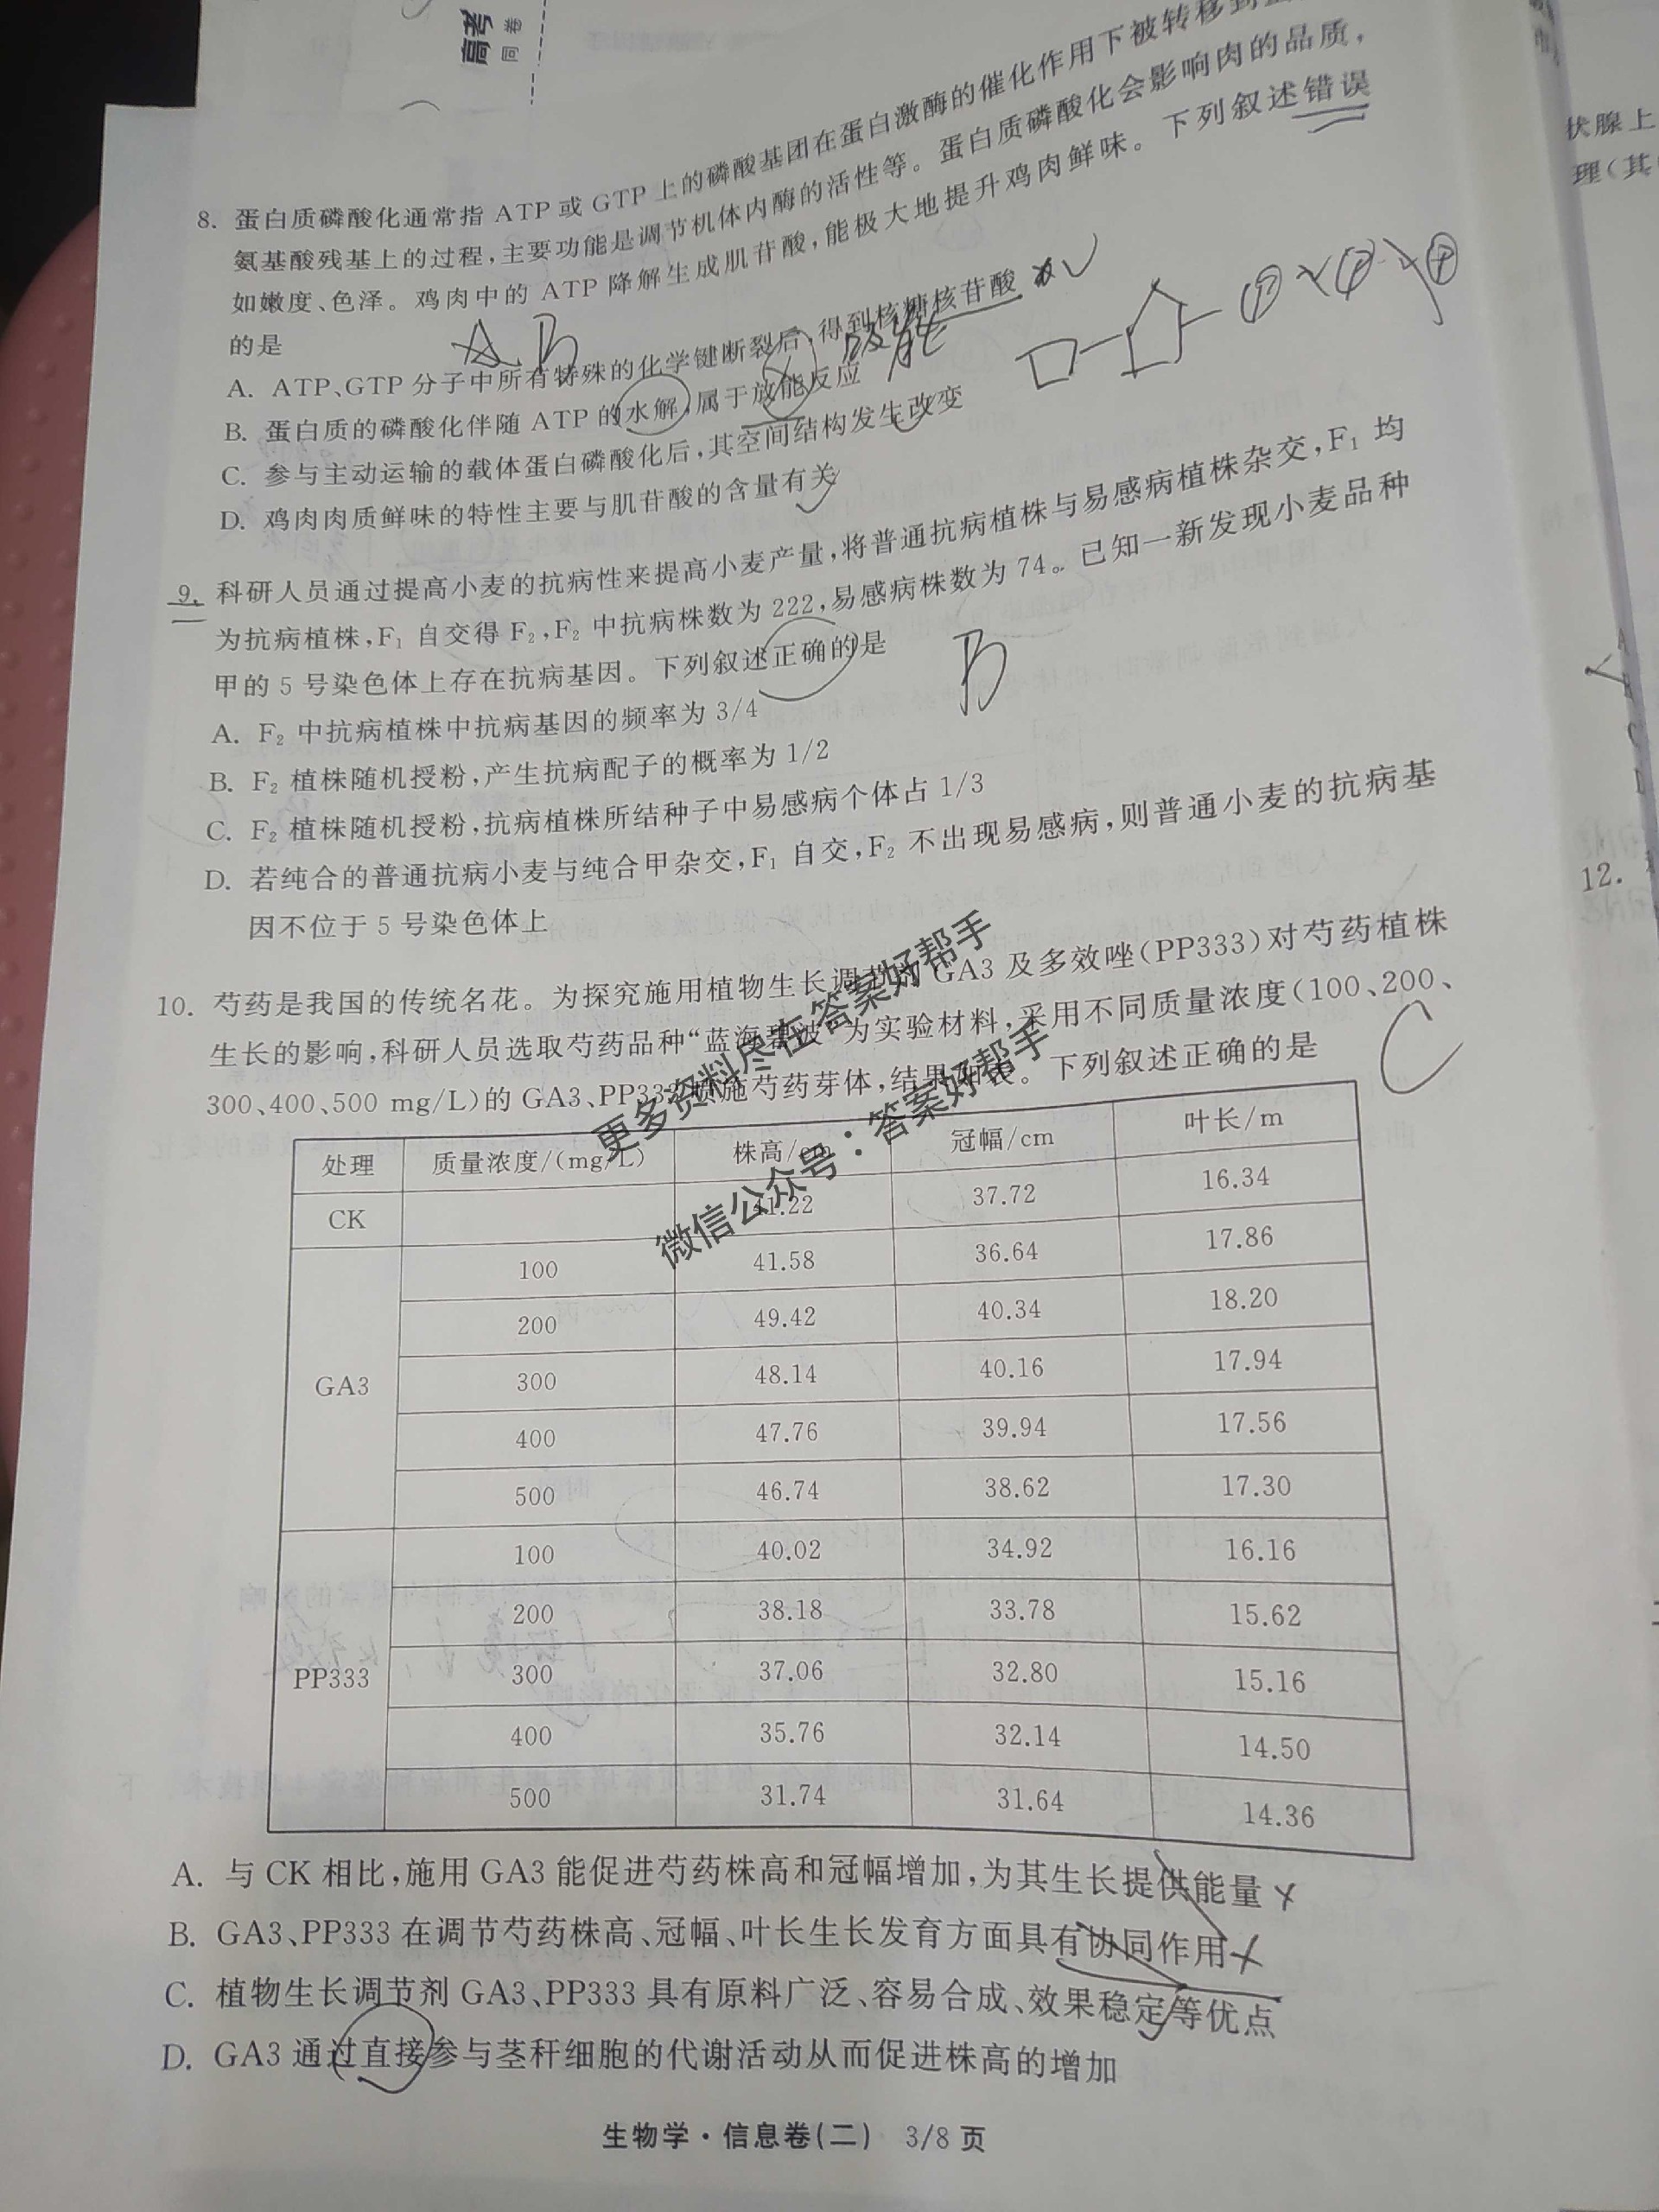 高考
问卷
8. 蛋白质磷酸化通常指 ATP 或 GTP 上的磷酸基团在蛋白激酶的催化作用下被转移到
氨基酸残基上的过程,主要功能是调节机体内酶的活性等。蛋白质磷酸化会影响肉的品质,
如嫩度、色泽。鸡肉中的 ATP 降解生成肌苷酸,能极大地提升鸡肉鲜味。下列叙述错误
的是
A B
A. ATP、GTP 分子中所有特殊的化学键断裂后,得到核糖核苷酸
吸能
B. 蛋白质的磷酸化伴随 ATP 的水解,属于放能反应
C. 参与主动运输的载体蛋白磷酸化后,其空间结构发生改变
D. 鸡肉肉质鲜味的特性主要与肌苷酸的含量有关
9. 科研人员通过提高小麦的抗病性来提高小麦产量,将普通抗病植株与易感病植株杂交,F₁ 均
为抗病植株,F₁ 自交得 F₂,F₂ 中抗病株数为 222,易感病株数为 74。已知一新发现小麦品种
甲的 5 号染色体上存在抗病基因。下列叙述正确的是
B
A. F₂ 中抗病植株中抗病基因的频率为 3/4
B. F₂ 植株随机授粉,产生抗病配子的概率为 1/2
C. F₂ 植株随机授粉,抗病植株所结种子中易感病个体占 1/3
D. 若纯合的普通抗病小麦与纯合甲杂交,F₁ 自交,F₂ 不出现易感病,则普通小麦的抗病基
因不位于 5 号染色体上
10. 芍药是我国的传统名花。为探究施用植物生长调节剂 GA3 及多效唑(PP333)对芍药植株
生长的影响,科研人员选取芍药品种“蓝海碧波”为实验材料,采用不同质量浓度(100、200、
300、400、500 mg/L)的 GA3、PP333 喷施芍药芽体,结果如表。下列叙述正确的是
C
处理 质量浓度/(mg/L) 株高/cm 冠幅/cm 叶长/m
CK 41.22 37.72 16.34
GA3
100 41.58 36.64 17.86
200 49.42 40.34 18.20
300 48.14 40.16 17.94
400 47.76 39.94 17.56
500 46.74 38.62 17.30
PP333
100 40.02 34.92 16.16
200 38.18 33.78 15.62
300 37.06 32.80 15.16
400 35.76 32.14 14.50
500 31.74 31.64 14.36
更多资料尽在答案好帮手
微信公众号:答案好帮手
A. 与 CK 相比,施用 GA3 能促进芍药株高和冠幅增加,为其生长提供能量
B. GA3、PP333 在调节芍药株高、冠幅、叶长生长发育方面具有协同作用
C. 植物生长调节剂 GA3、PP333 具有原料广泛、容易合成、效果稳定等优点
D. GA3 通过直接参与茎秆细胞的代谢活动从而促进株高的增加
生物学·信息卷(二) 3/8 页
状腺上
理(其
12.